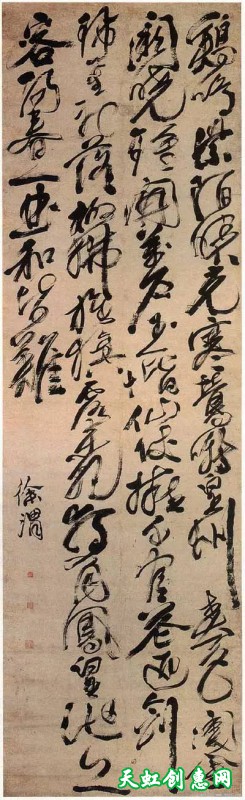 鷄鳴紫陌曙光寒鶯囀皇州春色闌金
闕曉鐘開萬戶玉階仙仗擁千官花迎劍
珮星初落柳拂旌旗露未乾獨有鳳皇池上
客陽春一曲和皆難
徐渭
天虹创惠网